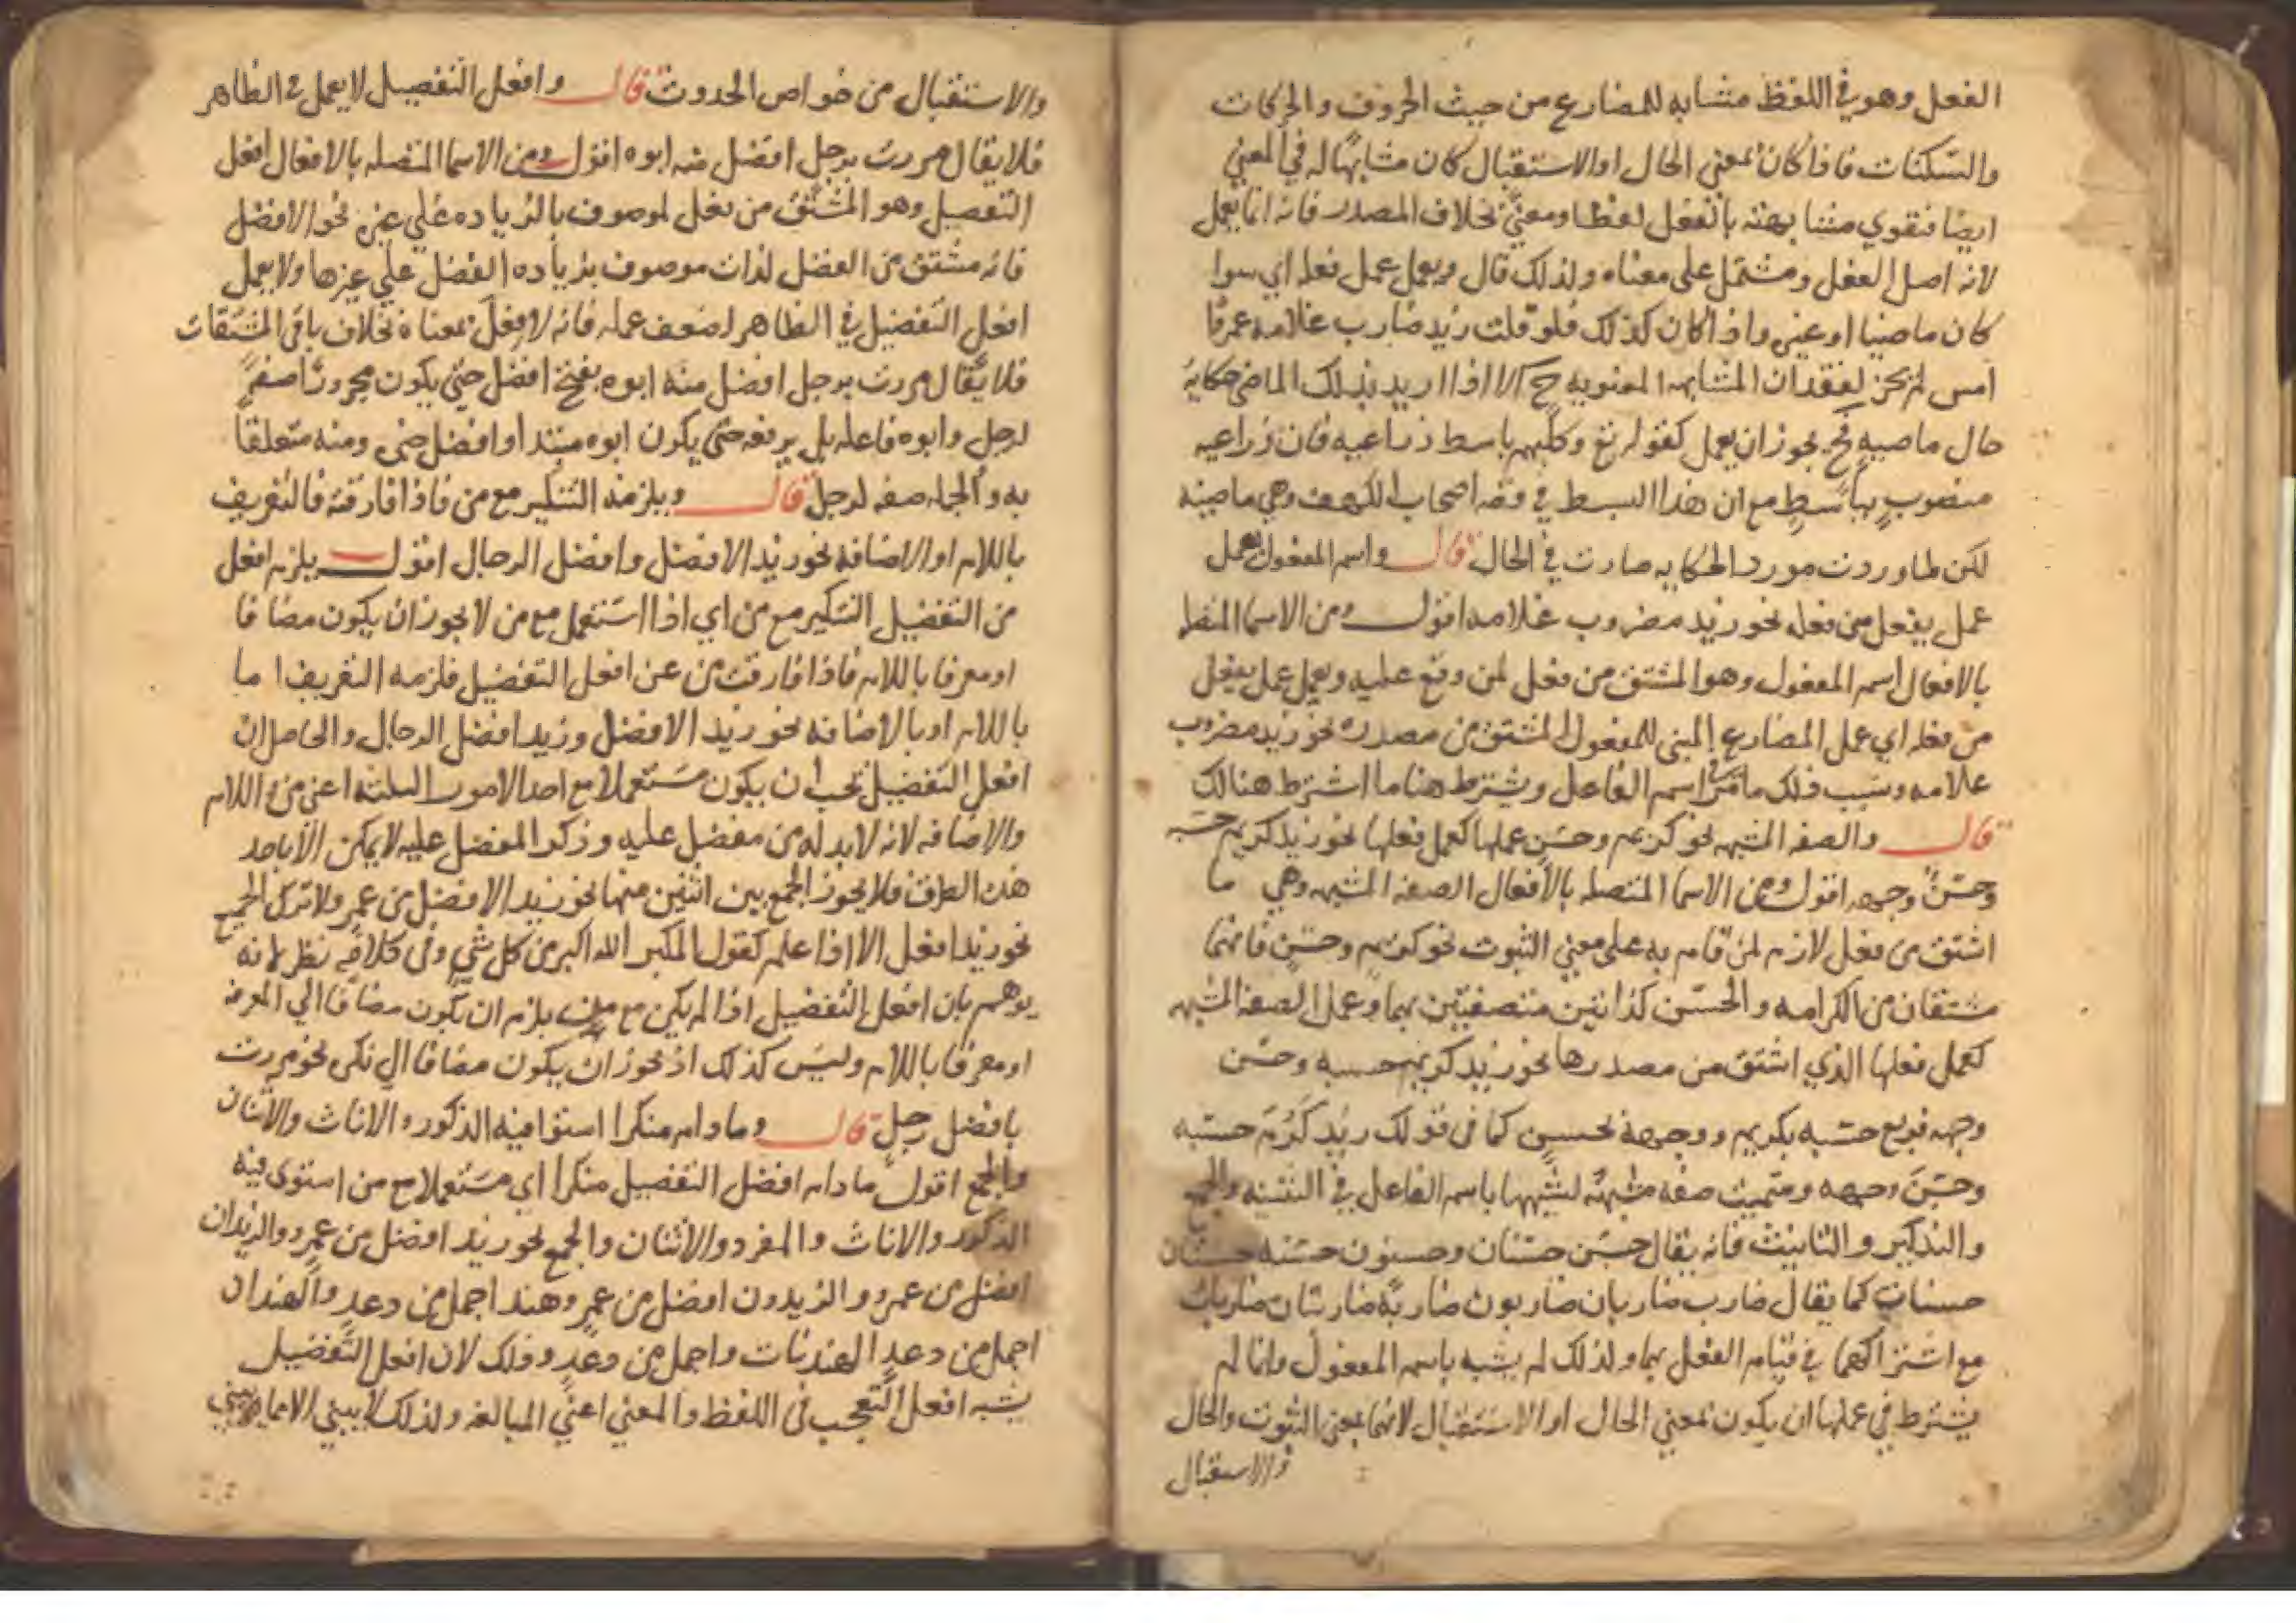 الفعل وهو في اللفظ مشابه للمضارع من حيث الحروف والحركات
والسكنات فاذا كان بمعني الحال او الاستقبال كان مشابها له في المعني
ايضا فتقوي مشابهته بالفعل لفظا ومعني بخلاف المصدر فانه انما يعمل
لانه اصل الفعل ومشتمل على معناه ولذلك قال ويعمل عمل فعله اي سوا
كان ماضيا او غيره واذا كان كذلك فلو قلت زيد ضارب غلامه عمرًا
امس لم يجز لفقدان المشابهه المعنويه ح الا اذا اريد بذلك الماضي حكاية
حال ماضيه فح يجوز ان يعمل كقوله تع وكلبهم باسط ذراعيه فان ذراعيه
منصوب بباسط مع ان هذا البسط في قصه اصحاب الكهف وهي ماضيه
لكن لما وردت مورد الحكايه صارت في الحال قال واسم المفعول يعمل
عمل يفعل من فعله نحو زيد مضروب غلامه اقول ومن الاسما المتصله
بالافعال اسم المفعول وهو المشتق من فعل لمن وقع عليه ويعمل عمل يفعل
من فعله اي عمل المضارع المبني للمفعول المشتق من مصدره نحو زيد مضروب
غلامه وسبب ذلك ما مر في اسم الفاعل ويشترط هنا ما اشترط هنالك
قال والصفه المشبهه نحو كريم وحسن عملها كعمل فعلها نحو زيد كريم حسبه
وحسن وجهه اقول ومن الاسما المتصله بالأفعال الصفه المشبهه وهي ما
اشتق من فعل لازم لمن قام به على معني الثبوت نحو كريم وحسن فانهما
مشتقان من الكرامه والحسن لذاتين متصفتين بهما وعمل الصفه المشبهه
كعمل فعلها الذي اشتق من مصدرها نحو زيد كريم حسبه وحسن
وجهه فرفع حسبه بكريم ووجهه بحسن كما في قولك زيد كَرُمَ حسبه
وحسُنَ وجهه وسميت صفه مشبهه لشبهها باسم الفاعل في التثنيه والجمع
والتذكير والتانيث فانه يقال حسن حسنان وحسنون حسنه حسنتان
حسنات كما يقال ضارب ضاربان ضاربون ضاربة ضاربتان ضاربات
مع اشتراكهما في قيام الفعل بهما ولذلك لم يشبه باسم المفعول وانما لم
يشترط في عملها ان يكون بمعني الحال او الاستقبال لانها بمعني الثبوت والحال
والاستقبال
والاستقبال من خواص الحدوث قال وافعل التفضيل لا يعمل في الظاهر
فلا يقال مررت برجل افضل منه ابوه اقول ومن الاسما المتصله بالافعال افعل
التفضيل وهو المشتق من فعل لموصوف بالزياده علي غيره نحو الافضل
فانه مشتق من الفضل لذات موصوف بزياده الفضل علي غيرها ولا يعمل
افعل التفضيل في الظاهر لضعف عمله فانه لا فعل بمعناه بخلاف باقي المشتقات
فلا يقال مررت برجل افضل منه ابوه بفتح افضل حتي يكون مجرورًا صفةً
لرجل وابوه فاعله بل يرفعه حتي يكون ابوه مبتدا وافضل خبره ومنه متعلقا
به والجمله صفه لرجل قال ويلزمه التنكير مع من فاذا فارقته فالتعريف
باللام او الاضافه نحو زيد الافضل وافضل الرجال اقول يلزم افعل
من التفضيل التنكير مع من اي اذا استعمل مع من لا يجوز ان يكون مضافا
او معرفا باللام فاذا فارقت من عن افعل التفضيل فلزمه التعريف اما
باللام او بالاضافه نحو زيد الافضل وزيد افضل الرجال والحاصل ان
افعل التفضيل يجب ان يكون مستعملا مع احد الامور الثلثه اعني من واللام
والاضافه لانه لابد له من مفضل عليه وذكر المفضل عليه لا يمكن الا باحد
هذه الطرق فلا يجوز الجمع بين اثنين منها نحو زيد الافضل من عمرٍو ولا ترك الجميع
نحو زيد افضل الا اذا علم كقول المكبر الله اكبر من كل شي وفي كلامه نظر لانه
يوهم بان افعل التفضيل اذا لم يكن مع من يلزم ان يكون مضافا الي المعرفه
او معرفا باللام وليس كذلك اذ يجوز ان يكون مضافا الي نكره نحو مررت
بافضل رجلٍ قال وما دام منكرا استوا فيه الذكور والاناث والاثنان
والجمع اقول ما دام افضل التفضيل منكرا اي مستعملا مع من استوي فيه
الذكور والاناث والمفرد والاثنان والجمع نحو زيد افضل من عمرو والزيدان
افضل من عمرو والزيدون افضل من عمرو وهند اجمل من دعدٍ والهندان
اجمل من دعدٍ الهندات واجمل من دعدٍ وذلك لان افعل التفضيل
يشبه افعل التعجب في اللفظ والمعني اعني المبالغه ولذلك لا يبني الا مما يبني